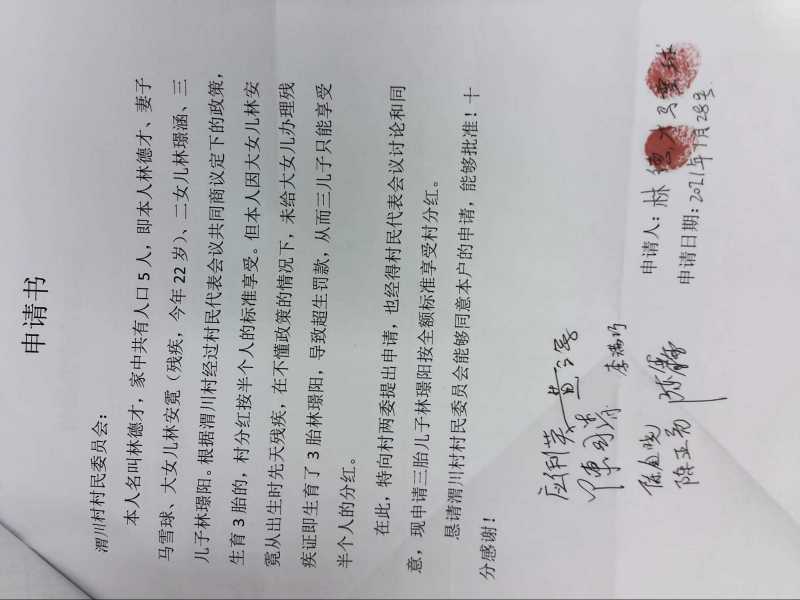 申请书
渭川村村民委员会：
本人名叫林德才，家中共有人口 5 人，即本人林德才、妻子
马雪球、大女儿林安霓（残疾，今年 22 岁）、二女儿林璟涵、三
儿子林璟阳。根据渭川村经过村民代表会议共同商议定下的政策，
生育 3 胎的，村分红按半个人的标准享受。但本人因大女儿林安
霓从出生时先天残疾，在不懂政策的情况下，未给大女儿办理残
疾证即生育了 3 胎林璟阳，导致超生罚款，从而三儿子只能享受
半个人的分红。
在此，特向村两委提出申请，也经得村民代表会议讨论和同
意，现申请三胎儿子林璟阳按全额标准享受村分红。
恳请渭川村村民委员会能够同意本户的申请，能够批准！十
分感谢！
申请人：林德才 马雪球
申请日期：2021年1月28号
李满巧